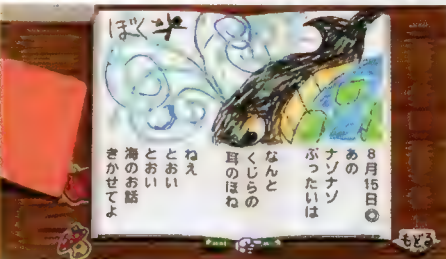 ぼく
8月15日◎
あの
ナゾナゾ
ぶったいは
なんと
くじらの
耳のほね
ねえ
とおい
とおい
海のお話
きかせてよ
もどる